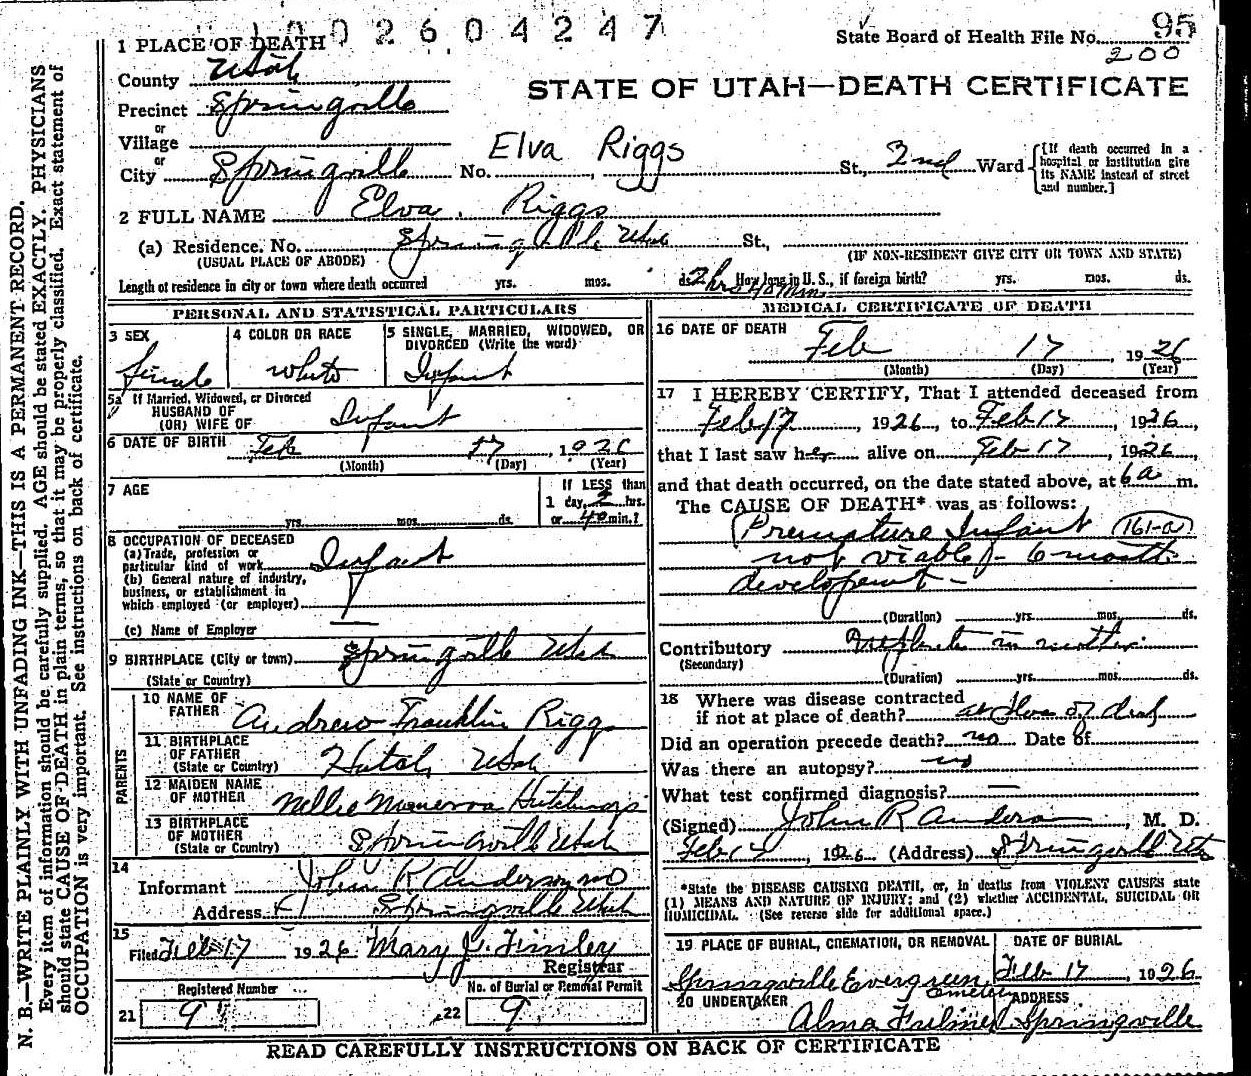 1002604247
State Board of Health File No. 95
200
1 PLACE OF DEATH
County Utah
STATE OF UTAH—DEATH CERTIFICATE
Precinct Springville
or
Village
or
City Springville No. Elva Riggs St., 2nd Ward [If death occurred in a hospital or institution give its NAME instead of street and number.]
2 FULL NAME Elva Riggs
(a) Residence. No. Springville Utah St.,
(USUAL PLACE OF ABODE) (IF NON-RESIDENT GIVE CITY OR TOWN AND STATE)
Length of residence in city or town where death occurred yrs. mos. ds. 2 hrs 40 min How long in U. S., if foreign birth? yrs. mos. ds.
PERSONAL AND STATISTICAL PARTICULARS
3 SEX 4 COLOR OR RACE 5 SINGLE, MARRIED, WIDOWED, OR DIVORCED (Write the word)
female white Infant
5a If Married, Widowed, or Divorced
HUSBAND OF
(OR) WIFE OF Infant
6 DATE OF BIRTH Feb 17, 1926
(Month) (Day) (Year)
7 AGE yrs. mos. ds. If LESS than 1 day, 2 hrs. or 40 min.?
8 OCCUPATION OF DECEASED
(a) Trade, profession or particular kind of work Infant
(b) General nature of industry, business, or establishment in which employed (or employer)
(c) Name of Employer
9 BIRTHPLACE (City or town) Springville Utah
(State or Country)
PARENTS
10 NAME OF FATHER Andrew Franklin Riggs
11 BIRTHPLACE OF FATHER (State or Country) Hatch Utah
12 MAIDEN NAME OF MOTHER Nellie Minerva Hutchings
13 BIRTHPLACE OF MOTHER (State or Country) Springville Utah
14
Informant John R Anderson MD
Address Springville Utah
15
Filed Feb 17 1926 Mary J. Finley
Registrar
Registered Number No. of Burial or Removal Permit
21 9 22 9
MEDICAL CERTIFICATE OF DEATH
16 DATE OF DEATH
Feb 17, 1926
(Month) (Day) (Year)
17 I HEREBY CERTIFY, That I attended deceased from
Feb 17, 1926, to Feb 17, 1926,
that I last saw her alive on Feb 17, 1926,
and that death occurred, on the date stated above, at 6 a m.
The CAUSE OF DEATH* was as follows:
Premature Infant 161-a
not viable - 6 month
development -
(Duration) yrs. mos. ds.
Contributory in mother
(Secondary)
(Duration) yrs. mos. ds.
18 Where was disease contracted
if not at place of death? at place of death
Did an operation precede death? no Date of
Was there an autopsy? no
What test confirmed diagnosis? —
(Signed) John R Anderson, M. D.
Feb 17, 1926 (Address) Springville Utah
*State the DISEASE CAUSING DEATH, or, in deaths from VIOLENT CAUSES state
(1) MEANS AND NATURE OF INJURY; and (2) whether ACCIDENTAL, SUICIDAL OR
HOMICIDAL. (See reverse side for additional space.)
19 PLACE OF BURIAL, CREMATION, OR REMOVAL DATE OF BURIAL
Springville Evergreen Cemetery Feb 17, 1926
20 UNDERTAKER ADDRESS
Alma Fulmer Springville
READ CAREFULLY INSTRUCTIONS ON BACK OF CERTIFICATE
N. B.—WRITE PLAINLY WITH UNFADING INK—THIS IS A PERMANENT RECORD.
Every item of information should be carefully supplied. AGE should be stated EXACTLY. PHYSICIANS
should state CAUSE OF DEATH in plain terms, so that it may be properly classified. Exact statement of
OCCUPATION is very important. See instructions on back of certificate.